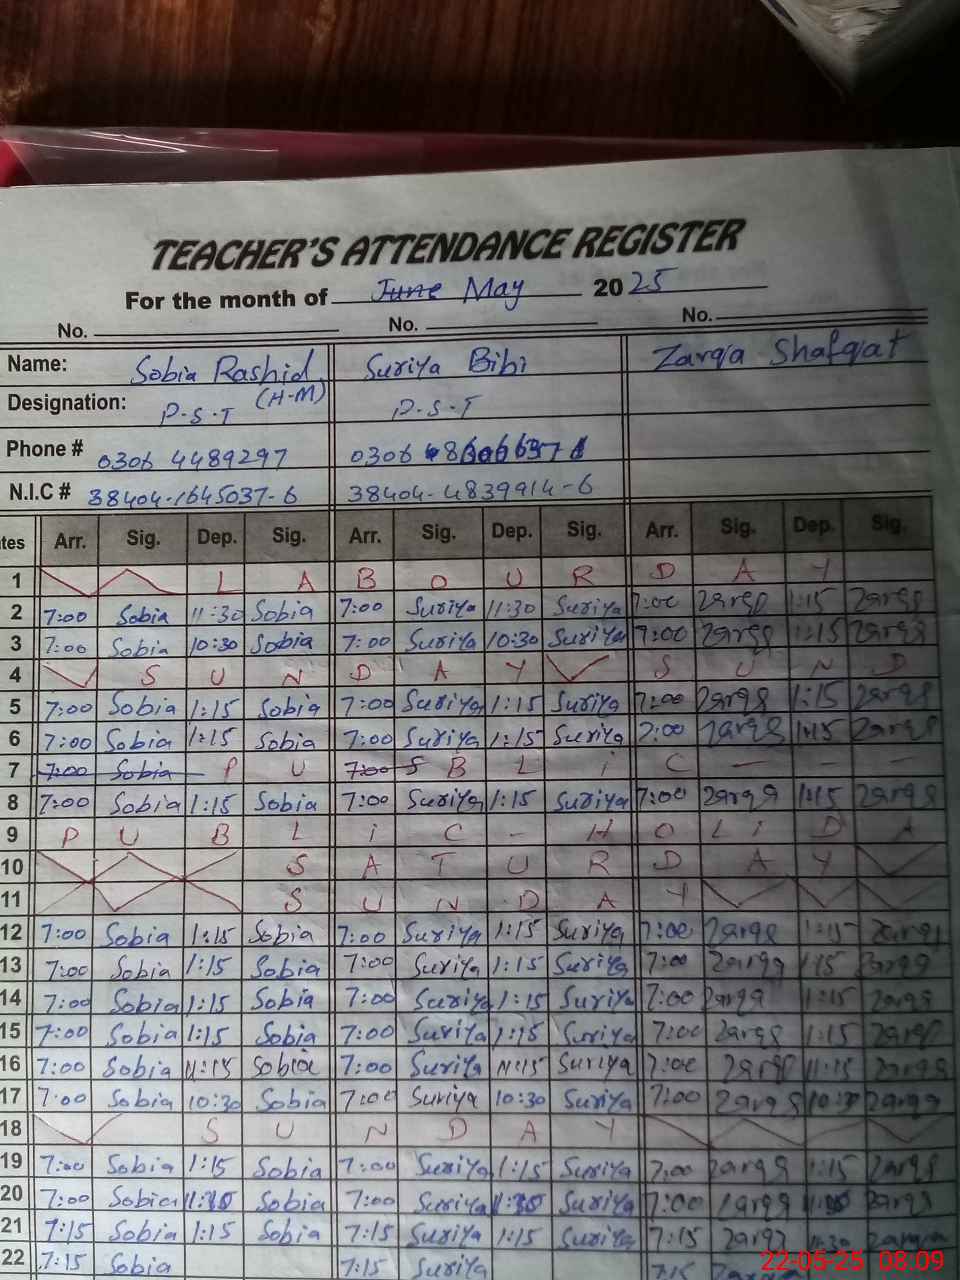 TEACHER'S ATTENDANCE REGISTER
For the month of June May 2025
No. No. No.
Name: Sobia Rashid Suriya Bibi Zarqa Shafqat
Designation: P.S.T (H-M) P.S.T
Phone # 0306 4489297 0306
N.I.C # 38404-1645037-6 38404-4839914-6
Arr. Sig. Dep. Sig. Arr. Sig. Dep. Sig. Arr. Sig. Dep. Sig.
1 L A B O U R D A Y
2 7:00 Sobia 11:30 Sobia 7:00 Suriya 11:30 Suriya 7:00 Zarqa 1:15 Zarqa
3 7:00 Sobia 10:30 Sobia 7:00 Suriya 10:30 Suriya 7:00 Zarqa 1:15 Zarqa
4 S U N D A Y S U N D
5 7:00 Sobia 1:15 Sobia 7:00 Suriya 1:15 Suriya 7:00 Zarqa 1:15 Zarqa
6 7:00 Sobia 1:15 Sobia 7:00 Suriya 1:15 Suriya 7:00 Zarqa 1:15 Zarqa
7 7:00 Sobia P U 7:00 S B L i C - - -
8 7:00 Sobia 1:15 Sobia 7:00 Suriya 1:15 Suriya 7:00 Zarqa 1:15 Zarqa
9 P U B L i C - H O L i D A
10 S A T U R D A Y
11 S U N D A Y
12 7:00 Sobia 1:15 Sobia 7:00 Suriya 1:15 Suriya 7:00 Zarqa 1:15 Zarqa
13 7:00 Sobia 1:15 Sobia 7:00 Suriya 1:15 Suriya 7:00 Zarqa 1:15 Zarqa
14 7:00 Sobia 1:15 Sobia 7:00 Suriya 1:15 Suriya 7:00 Zarqa 1:15 Zarqa
15 7:00 Sobia 1:15 Sobia 7:00 Suriya 1:15 Suriya 7:00 Zarqa 1:15 Zarqa
16 7:00 Sobia 11:15 Sobia 7:00 Suriya 11:15 Suriya 7:00 Zarqa 11:15 Zarqa
17 7:00 Sobia 10:30 Sobia 7:00 Suriya 10:30 Suriya 7:00 Zarqa 10:30 Zarqa
18 S U N D A Y
19 7:00 Sobia 1:15 Sobia 7:00 Suriya 1:15 Suriya 7:00 Zarqa 1:15 Zarqa
20 7:00 Sobia Sobia 7:00 Suriya Suriya 7:00 Zarqa Zarqa
21 7:15 Sobia 1:15 Sobia 7:15 Suriya 1:15 Suriya 7:15 Zarqa 11:30 Zarqa
22 7:15 Sobia 7:15 Suriya 7:15
22-05-25 08.09